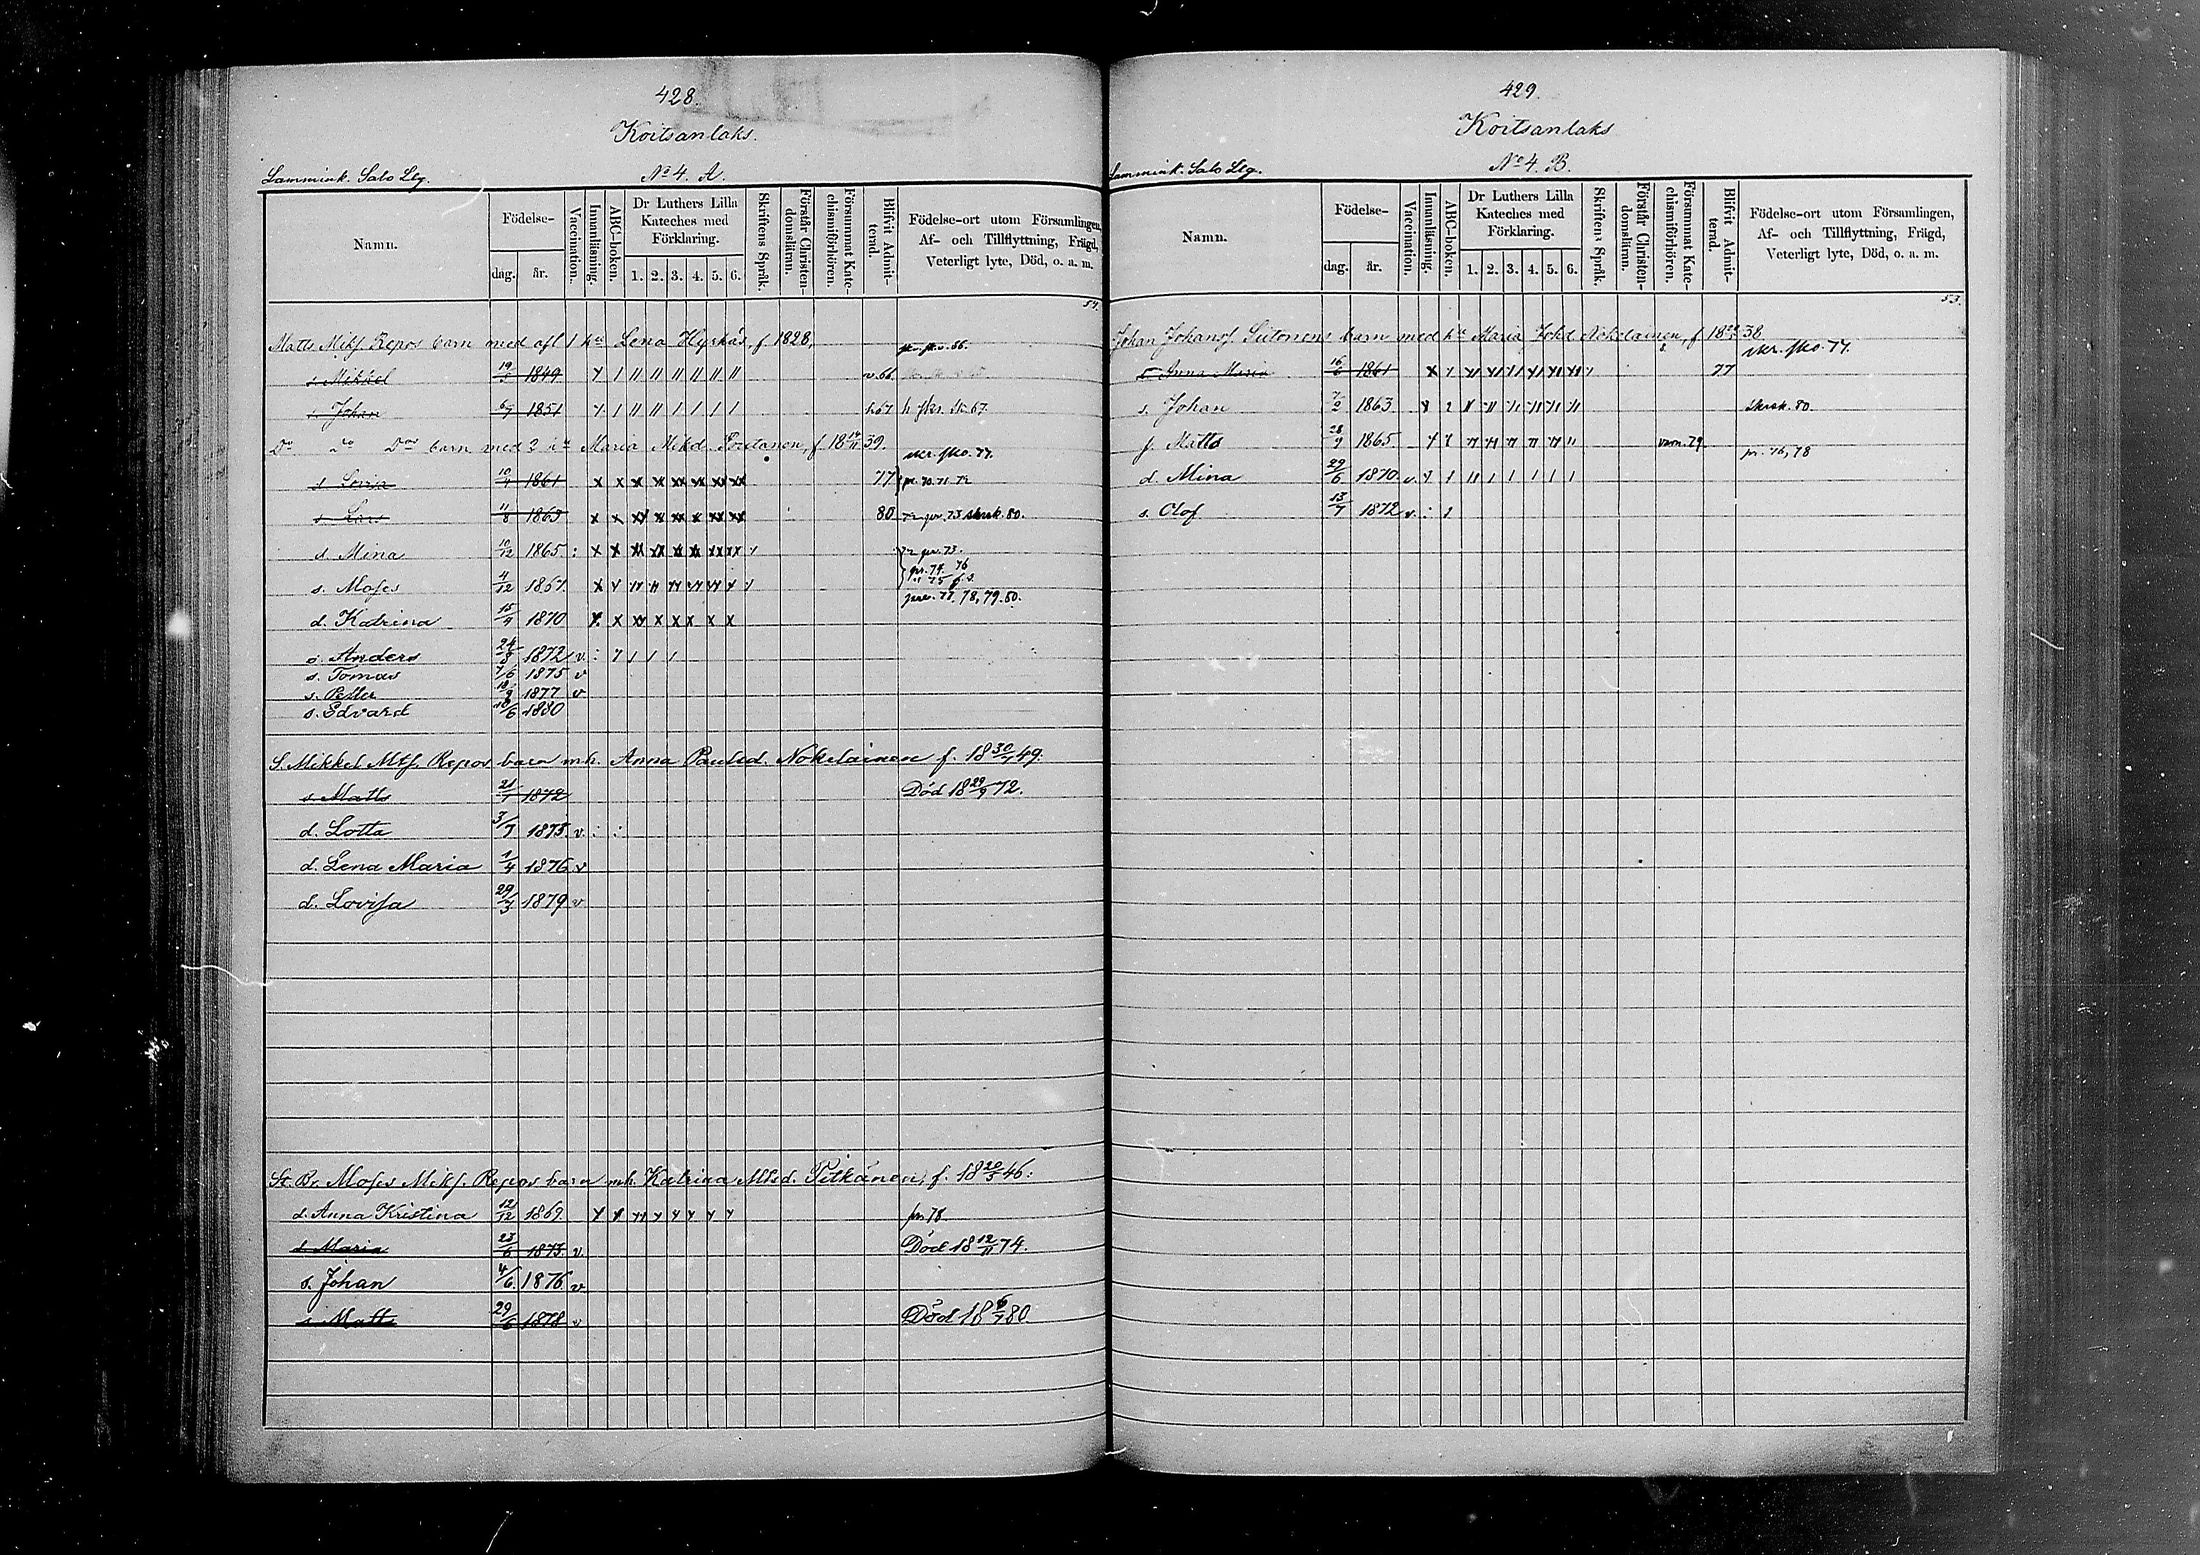 428.
Koitsanlaks.
Lammink. Salo Llg. No 4. A.
Namn. Födelse- dag. år. Vaccination. Innanläsning. ABC-boken. Dr Luthers Lilla Kateches med Förklaring. 1. 2. 3. 4. 5. 6. Skriftens Språk. Förstår Christendomsläran. Försummat Katechismiförhören. Blifvit Admitterad. Födelse-ort utom Församlingen, Af- och Tillflyttning, Frägd, Veterligt lyte, Död, o. a. m.
54.
Matts Mikf. Repos barn med afl 1 hu Lena Hyrkäs, f 1828,
s. Mikkel 19/5 1849 v. 66
s. Johan 6/7 1851 h 67
Do Do Dos barn med 2 hu Maria Mikd. Poutanen, f. 18 14/11 39.
skr. sko. 77.
d. Lovisa 10/4 1861 77 pr. 70. 71. 72
s. Lars 11/8 1863 80 72 pr. 73 skrsk. 80.
d. Mina 10/12 1865. 72 pr. 73.
pr. 74. 76
s. Moses 4/12 1867. " 75 f. s.
78, 79. 80.
d. Katrina 15/4 1870
s. Anders 24/8 1872 v.
s. Tomas 7/6 1875 v
s. Petter 18/9 1877 v
s. Edvard 18/6 1880
S. Mikkel Mtf. Repos barn mh. Anna Paulsd. Nokelainen f. 18 30/7 49.
s. Matts 21/7 1872 Död 18 29/9 72.
d. Lotta 3/7 1873. v.
d. Lena Maria 1/4 1876 v
d. Lovisa 29/3 1879 v
St. Br. Moses Mikf. Repos barn mh. Katrina Mtsd. Pitkänen, f. 18 20/5 46:
d. Anna Kristina 12/12 1869 pr. 78
d. Maria 23/6 1873. v. Död 18 12/11 74.
s. Johan 4/6. 1876 v
s. Matts 29/6 1878 v Död 18 6/7 80
429.
Koitsanlaks
Lammink. Salo Llg. No 4. B.
Namn. Födelse- dag. år. Vaccination. Innanläsning. ABC-boken. Dr Luthers Lilla Kateches med Förklaring. 1. 2. 3. 4. 5. 6. Skriftens Språk. Förstår Christendomsläran. Försummat Katechismiförhören. Blifvit Admitterad. Födelse-ort utom Församlingen, Af- och Tillflyttning, Frägd, Veterligt lyte, Död, o. a. m.
53.
Johan Johansf. Siitonens barn med hu Maria Johd. Nokelainen, f 18 38
skr. sko. 77.
d. Anna Maria 16/6 1861 77
s. Johan 7/2 1863 skrsk. 80.
s. Matts 28/9 1865 79
pr. 76, 78
d. Mina 29/6 1870. v.
s. Olof 13/7 1872 v.